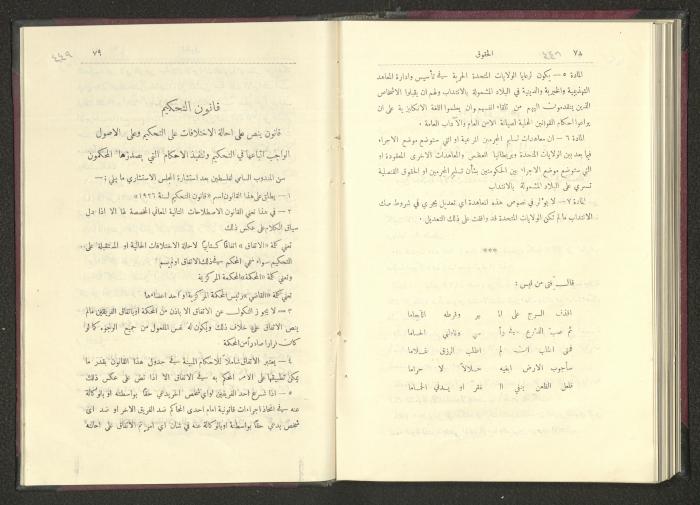 ٧٨
الحقوق
٤٤٨
المادة ٥ – يكون لرعايا الولايات المتحدة الحرية في تأسيس وادارة المعاهد
التهذيبية والخيرية والدينية في البلاد المشمولة بالانتداب ولهم ان يقبلوا الاشخاص
الذين يتقدمون اليهم من تلقاء انفسهم وان يعلموا اللغة الانكليزية على ان
يراعوا احكام القوانين المحلية لصيانة الامن العام والآداب العامة .
المادة ٦ – ان معاهدات تسليم المجرمين المرعية او التي ستوضع موضع الاجراء
فيما بعد بين الولايات المتحدة وبريطانيا العظمى والمعاهدات الاخرى المعقودة او
التي ستوضع موضع الاجراء بين الحكومتين بشأن تسليم المجرمين او الحقوق القنصلية
تسري على البلاد المشمولة بالانتداب
المادة ٧ – لا يؤثر في نصوص هذه المعاهدة اي تعديل يجري في شروط صك
الانتداب ما لم تكن الولايات المتحدة قد وافقت على ذلك التعديل .
***
قال فتى من قيس :
اقذف السرج على المهر وقرطه اللجاما
ثم صب الدرع في رأسي وناولني الحساما
فمتى اطلب ان لم اطلب الرزق غلاما
سأجوب الارض ابغيه حلالاً لا حراما
فلعل الظعن ينفي الفقر او يدني الحماما
٧٩
٤٤٩
قانون التحكيم
قانون ينص على احالة الاختلافات على التحكيم وعلى الاصول
الواجب اتباعها في التحكيم وتنفيذ الاحكام التي يصدرها المحكمون
سن المندوب السامي لفلسطين بعد استشارة المجلس الاستشاري ما يلي :–
١ – يطلق على هذا القانون اسم «قانون التحكيم لسنة ١٩٢٦»
٢ – في هذا تعني القانون الاصطلاحات التالية المعاني المخصصة لها الا اذا دل
سياق الكلام على عكس ذلك
تعني كلمة «الاتفاق» اتفاقاً كتابياً لاحالة الاختلافات الحالية او المستقبلة على
التحكيم سواء سمي المحكم في ذلك الاتفاق او لم يسم
وتعني كلمة «المحكمة» المحكمة المركزية
تعني كلمة «القاضي» رئيس المحكمة المركزية او احد اعضاءها
٣ – لا يجوز النكول عن الاتفاق الا باذن من المحكمة او باتفاق الفريقين مالم
ينص الاتفاق على خلاف ذلك ويكون له نفس المفعول من جميع الوجوه كما لو
كانت قرارا صادرا من المحكمة
٤ – يعتبر الاتفاق شاملاً للاحكام المبينة في جدول هذا القانون بقدر ما
يمكن تطبيقها على الامر المحكم به في الاتفاق الا اذا نص على عكس ذلك
٥ – اذا شرع احد الفريقين او اي شخص آخر يدعي حقاً بواسطته او بالوكالة
عنه في اتخاذ اجراءات قانونية امام احدى المحاكم ضد الفريق الاخر او ضد اي
شخص يدعي حقاً بواسطته او بالوكالة عنه في شأن اي امر تم الاتفاق على احالته